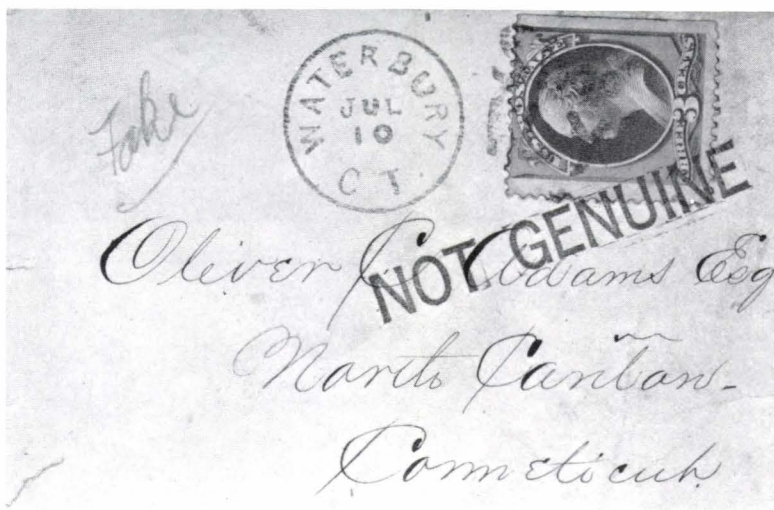 Fake
WATERBURY
JUL
10
CT.
NOT GENUINE
Oliver C. Adams Esq
North Canton-
Connecticut